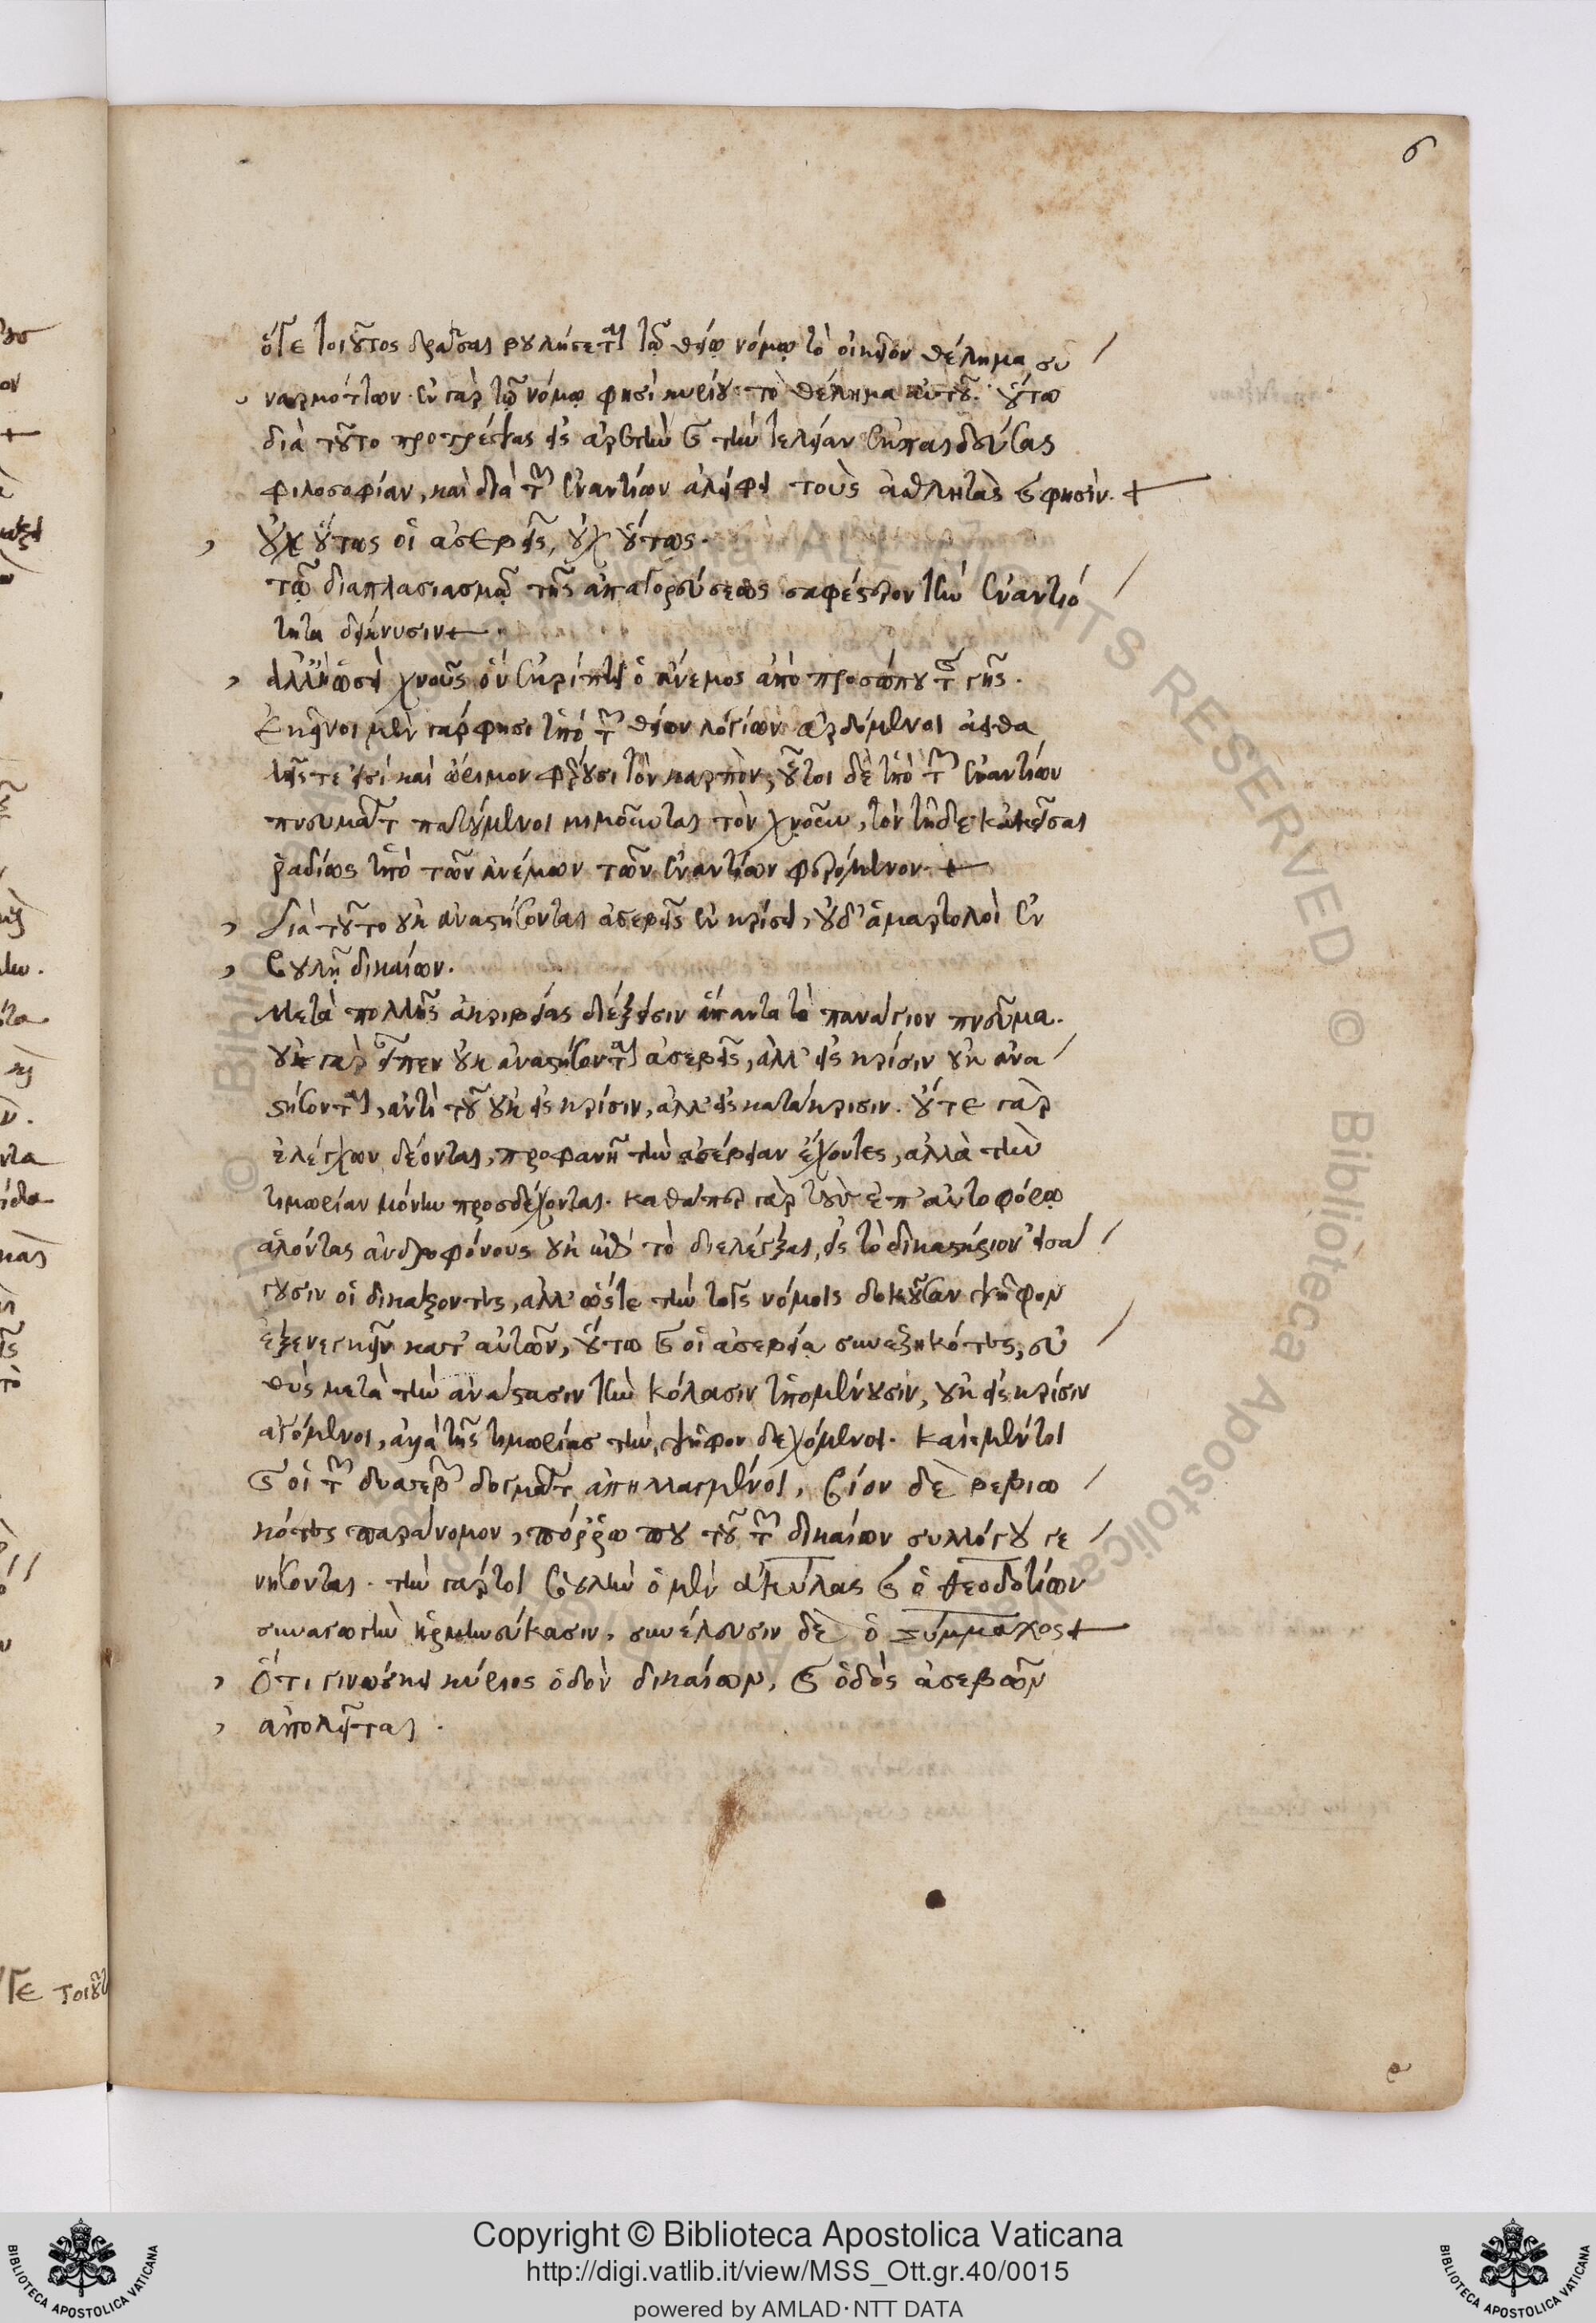 6
ὅγε τοιοῦτος ἐραστὴς βουλήσεται τῷ θείῳ νόμῳ τὸ οἰκεῖον θέλημα συ
ναρμόττων· ἐν γὰρ τῷ νόμῳ φησὶ κυρίου τὸ θέλημα αὐτοῦ. οὕτω
διὰ τοῦτο προτρέψας εἰς ἀρετὴν καὶ τὴν τελείαν ἐκπαιδεύσας
φιλοσοφίαν, καὶ διὰ τῶν ἐναντίων ἀλείφει τοὺς ἀθλητὰς καὶ φησίν. +
οὐχ οὕτως οἱ ἀσεβεῖς, οὐχ οὕτως.
τῷ διαπλασιασμῷ τῆς ἀπαγορεύσεως σαφέστερον τὴν ἐναντιό
τητα δείκνυσιν +
ἀλλ' ἢ ὡσεὶ χνοῦς ὃν ἐκρίπτει ὁ ἄνεμος ἀπὸ προσώπου τῆς γῆς.
ἐκεῖνοι μὲν γάρ φησι ὑπὸ τῶν θείων λογίων ἀρδόμενοι ἀειθα
λεῖς τέ εἰσι καὶ ὥριμον φέρουσι τὸν καρπὸν, οὗτοι δὲ ὑπὸ τῶν ἐναντίων
πνευμάτων πατούμενοι μιμοῦνται τὸν χνοῦν, τὸν τῇδε κἀκεῖσαι
ῥαδίως ὑπὸ τῶν ἀνέμων τῶν ἐναντίων φερόμενον. +
διὰ τοῦτο οὐκ ἀναστήσονται ἀσεβεῖς ἐν κρίσει, οὐδ' ἁμαρτολοὶ ἐν
βουλῇ δικαίων.
Μετὰ πολλῆς ἀκριβείας διέξεισιν ἅπαντα τὸ πανάγιον πνεῦμα.
οὐκ γὰρ εἶπεν οὐκ ἀναστήσονται ἀσεβεῖς, ἀλλ' εἰς κρίσιν οὐκ ἀνα
στήσονται, ἀντὶ τοῦ οὐκ εἰς κρίσιν, ἀλλ' εἰς κατάκρισιν. οὔτε γὰρ
ἐλέγχων δέονται, προφανῆ τὴν ἀσέβειαν ἔχοντες, ἀλλὰ τὴν
τιμωρίαν μόνην προσδέχονται. καθάπερ γὰρ τοὺς ἐπ' αὐτοφόρῳ
ἁλόντας ἀνδροφόνους οὐκ ὥστε τὸ διελέγξαι, εἰς τὸ δικαστήριον εἰσά
γουσιν οἱ δικάζοντες, ἀλλ' ὥστε τὴν τοῖς νόμοις δοκοῦσαν ψῆφον
ἐξενεγκεῖν κατ' αὐτῶν, οὕτω καὶ οἱ ἀσεβείᾳ συνεζηκότες, εὐ
θὺς μετὰ τὴν ἀνάστασιν τὴν κόλασιν ὑπομένουσιν, οὐκ εἰς κρίσιν
ἀγόμενοι, ἀλλὰ τῆς τιμωρίας τὴν ψῆφον δεχόμενοι. καὶ μέντοι
καὶ οἱ τῶν δυσσεβῶν δογμάτων ἀπηλλαγμένοι, βίον δὲ βεβιω
κότες παράνομον, πόρρω που τοῦ τῶν δικαίων συλλόγου γε
νήσονται. τὴν γάρτοι βουλὴν ὁ μὲν ἀκύλας καὶ ὁ θεοδοτίων
συναγωγὴν ἡρμηνεύκασιν, συνέλευσιν δὲ ὁ σύμμαχος +
Ὅτι γινώσκει κύριος ὁδὸν δικαίων, καὶ ὁδὸς ἀσεβῶν
ἀπολεῖται.
γε τοιοῦτ
Copyright © Biblioteca Apostolica Vaticana
http://digi.vatlib.it/view/MSS_Ott.gr.40/0015
powered by AMLAD·NTT DATA
BIBLIOTECA APOSTOLICA VATICANA
BIBLIOTECA APOSTOLICA VATICANA